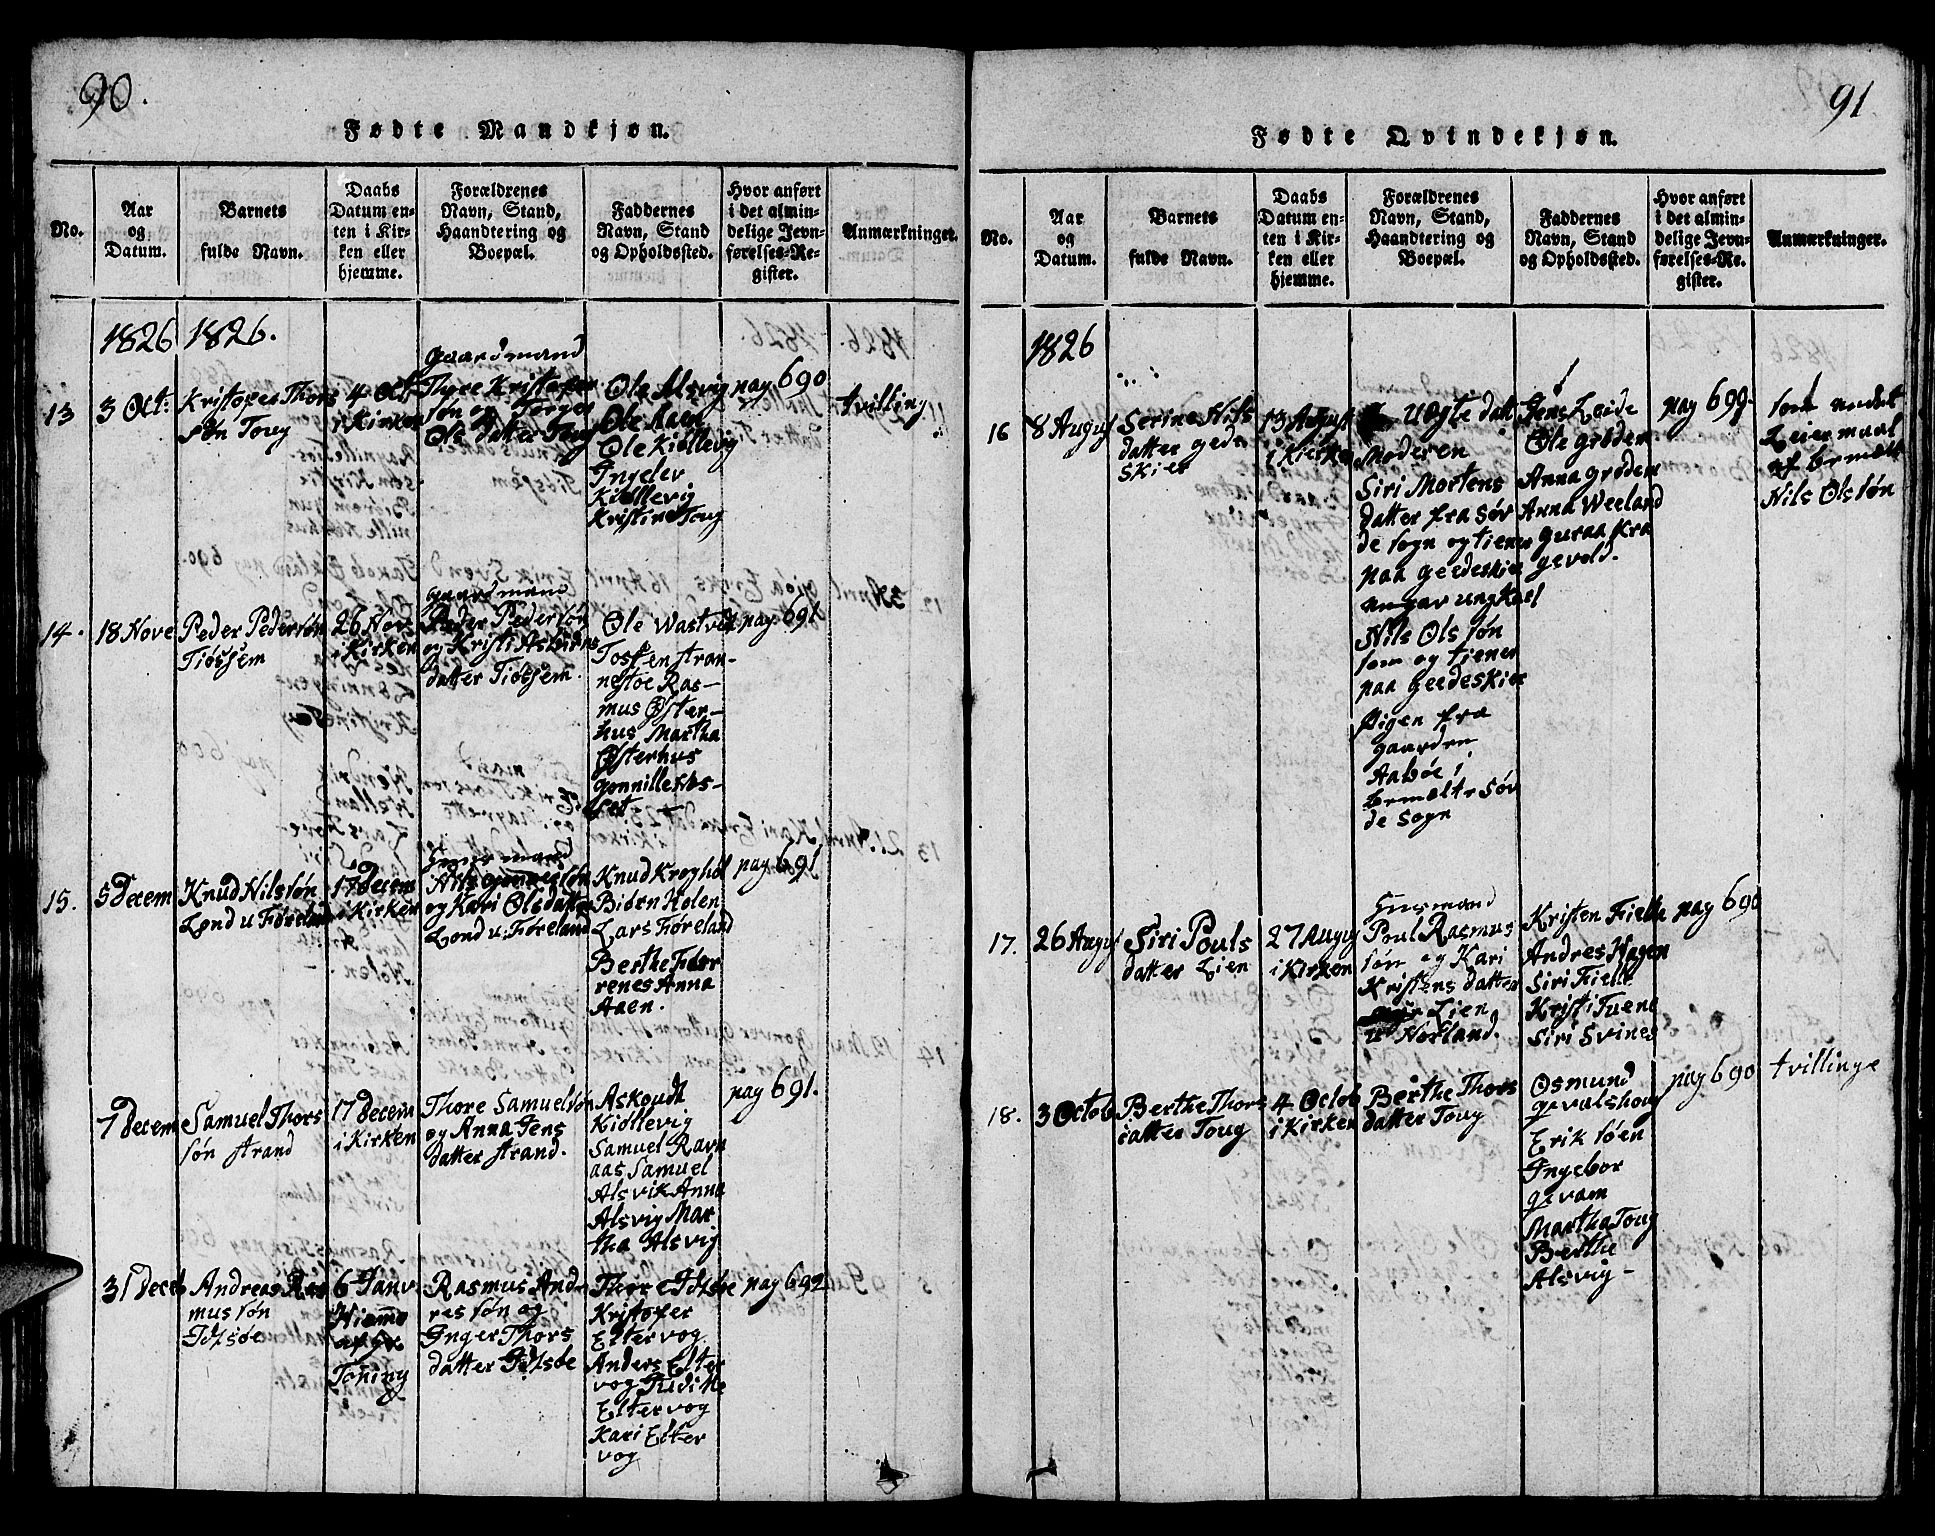 90.
Fødte Mandkjøn.
No.
Aar
og
Datum.
Barnets
fulde Navn.
Daabs
Datum en-
ten i Kir-
ken eller
hjemme.
Forældrenes
Navn, Stand,
Haandtering og
Boepæl.
Faddernes
Navn, Stand
og Opholdssted.
Hvor anført
i det almin-
delige Jevn-
førelses-Re-
gister.
Anmærkninger.
1826
1826.
13
3 Oct:
Kristofer Thors
søn Toug
4 Oct
i Kirken
Gaardmand
Thore Kristofer
søn og Torges
Ols datter Toug
Ole Alsvig
Ole Aaen
Ole Kiøllevig
Ingelev
Kiøllevig
Kristine Toug
pag 690
tvilling
14.
18 Nove
Peder Pedersøn
Tiøssem
26 Nov
i Kirken
gaardmand
Peder Pedersøn
og Kristi Asbiørns
datter Tiøssem.
Ole Wastvet
Tosten stran-
nestoe Ras-
mus Øster-
hus Martha
Østerhus
gonnille Hos-
set
pag 691
15.
5 Decem
Knud Nilssøn
Lond u: Føreland
17 decem
i Kirken
Huusmand
Nils gonnersøn
og Kari Olsdatter
Lond u: Føreland
Knud Kroghøl
Biørn Holen
Lars Føreland
Berthe Fiær
renes Anna
Aaen.
pag 691
7 Decem
Samuel Thors
søn strand
17 decem
i Kirken
Thore Samuelsøn
og Anna Jens
datter strand.
Askoudt
Kiøllevig
Samuel Ravn
aas Samuel
Alsvik Anna
Alsvig Mar
tha Alsvig
pag 691.
31 Deceb
Andreas Ras
mus søn
Idsøe
6 Janv
Hiemme
af
Toning
Rasmus And
res søn og
Inger Thors
datter Idsøe
Thore Idsøe
Kristofer
Eltervog
Anders Elter
vog Juditte
Eltervog
Kari Elter
vog
pag 692
91
Fødte Qvindekjøn.
No.
Aar
og
Datum.
Barnets
fulde Navn.
Daabs
Datum en-
ten i Kir-
ken eller
hjemme.
Forældrenes
Navn, Stand,
Haandtering og
Boepæl.
Faddernes
Navn, Stand
og Opholdssted.
Hvor anført
i det almin-
delige Jevn-
førelses-Re-
gister.
Anmærkninger.
1826
16
8 Augus
Serine Nils
datter gede
skier
13 August
i Kirken
Uægte datt
Moderen
Siri Mortens
datter fra Søv
de sogn og tiener
paa geedeskier
angav ungkarl
Nils Ols søn
som og tiener
paa Geedeskier
Pigen fra
gaarden
Aabøe i
bemelte Søv
de Sogn
Jens Leide
Ole grøden
Anna grøden
Anna Weeland
guraa Kra
gevold.
pag 699.
første andet
Leiermaal
af bemelte
Nils Olssøn
17.
26 Augus
Siri Pouls
datter Lien
27 Augus
i Kirken
Huusmand
Poul Rasmus
søn og Kari
Kristens datter
Lien
u: Norland.
Kristen Fielle
Andres Hagen
Siri Fielle
Kristi Tuene
Siri Svines
pag 690
18.
3 Octob
Berthe Thors
datter Toug
4 Octob
i Kirken
Berthe Thors
datter Toug
Osmund
gevalshoug
Erik Tøen
Ingebor
gevam
Martha Toug
Berthe
Alsvig-
pag 690
tvillinge